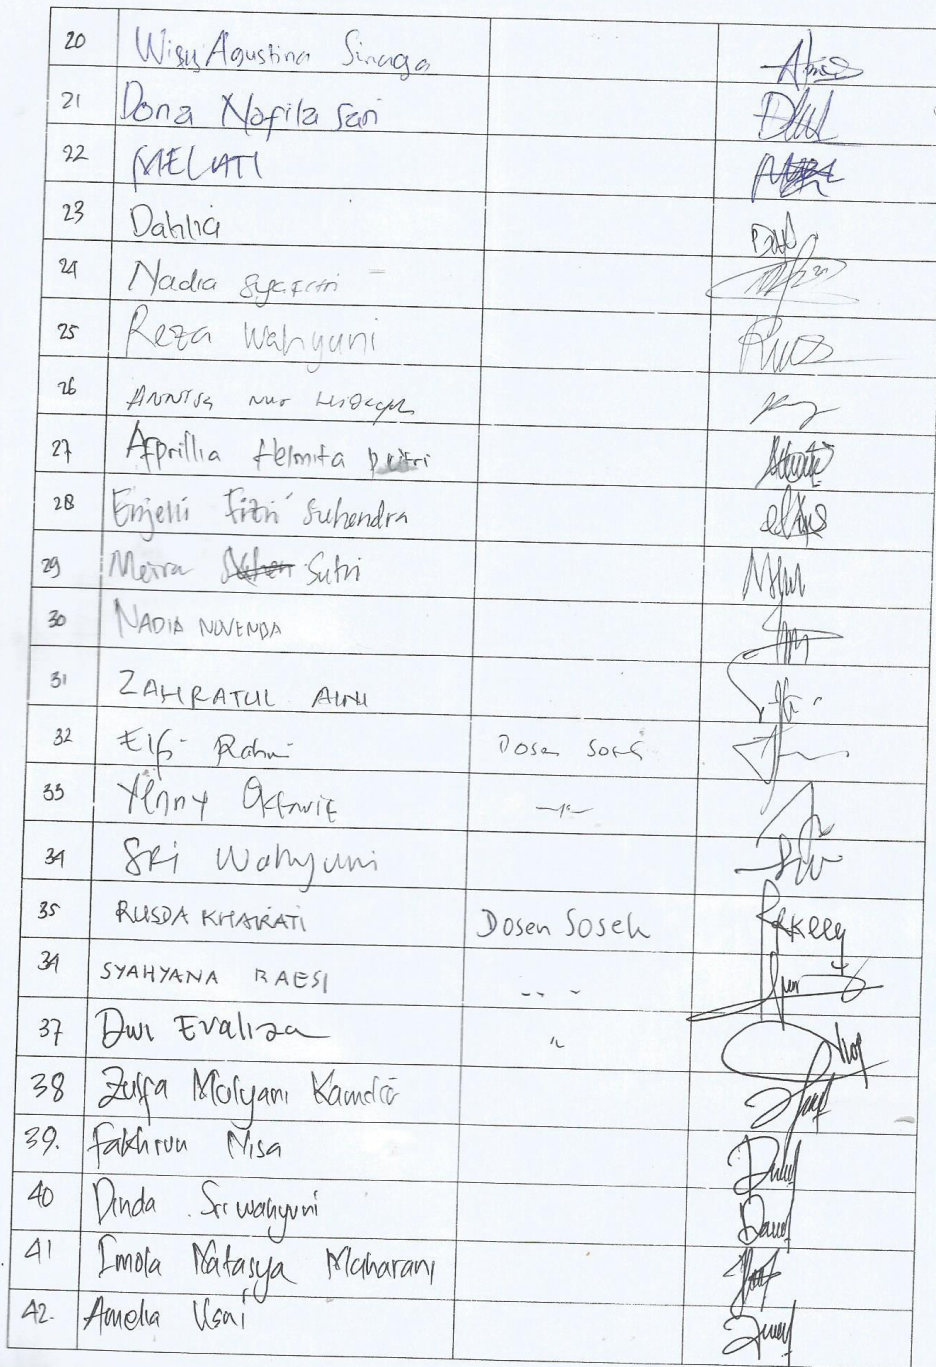 20 Wisy Agustina Sinaga
21 Dona Nofila Sari
22 MELATI
23 Dahlia
24 Nadia Syafitri
25 Reza Wahyuni
26 Annisa Nur Hidayah
27 Afprillia Helmita putri
28 Enjelii Fitri Suhendra
29 Meira Sutri
30 NADIA NOVENDA
31 ZAHRATUL AINI
32 Elfi Rahmi Dosen Sosek
33 Yenny Oktavia
34 SRi Wahyuni
35 RUSDA KHAIRATI Dosen Sosek
34 SYAHYANA RAESI
37 Dwi Evaliza "
38 Zulfa Mulyani Kamdia
39. Fakhrun Nisa
40 Dinda Sri wahyuni
41 Imola Natasya Maharani
42. Amelia Usni